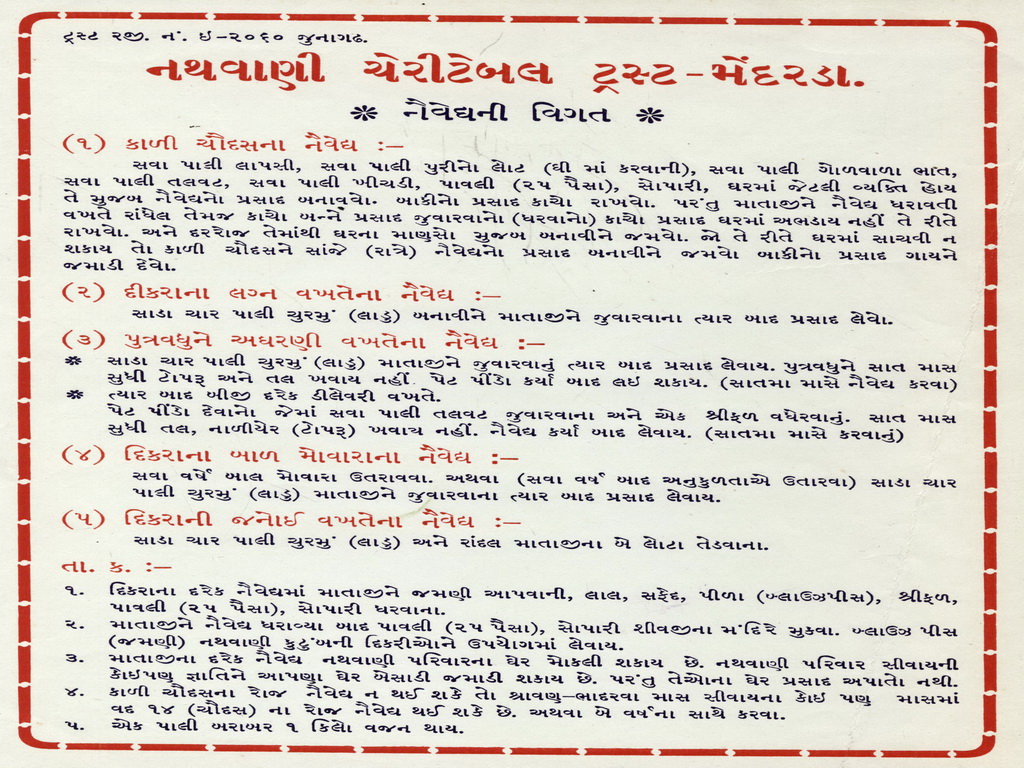 ટ્રસ્ટ રજી. નં. ઇ-૨૦૬૦ જુનાગઢ.
નથવાણી ચેરીટેબલ ટ્રસ્ટ-મેંદરડા.
* નૈવેદ્યની વિગત *
(૧) કાળી ચૌદસના નૈવેદ્ય :–
સવા પાલી લાપસી, સવા પાલી પુરીનો લોટ (ઘી માં કરવાની), સવા પાલી ગોળવાળા ભાત,
સવા પાલી તલવટ, સવા પાલી ખીચડી, પાવલી (૨૫ પૈસા), સોપારી, ઘરમાં જેટલી વ્યક્તિ હોય
તે મુજબ નૈવેદ્યનો પ્રસાદ બનાવવો. બાકીનો પ્રસાદ કાચો રાખવો. પરંતુ માતાજીને નૈવેદ્ય ધરાવતી
વખતે રાંધેલ તેમજ કાચો બન્ને પ્રસાદ જુવારવાનો (ધરવાનો) કાચો પ્રસાદ ઘરમાં અભડાય નહીં તે રીતે
રાખવો. અને દરરોજ તેમાંથી ઘરના માણસો મુજબ બનાવીને જમવો. જો તે રીતે ઘરમાં સાચવી ન
શકાય તો કાળી ચૌદસને સાંજે (રાત્રે) નૈવેદ્યનો પ્રસાદ બનાવીને જમવો બાકીનો પ્રસાદ ગાયને
જમાડી દેવો.
(૨) દીકરાના લગ્ન વખતેના નૈવેદ્ય :–
સાડા ચાર પાલી ચુરમું (લાડુ) બનાવીને માતાજીને જુવારવાના ત્યાર બાદ પ્રસાદ લેવો.
(૩) પુત્રવધુને અઘરણી વખતેના નૈવેદ્ય :–
* સાડા ચાર પાલી ચુરમું (લાડુ) માતાજીને જુવારવાનું ત્યાર બાદ પ્રસાદ લેવાય. પુત્રવધુને સાત માસ
સુધી ટોપરૂ અને તલ ખવાય નહીં. પેટ પીંડો કર્યા બાદ લઇ શકાય. (સાતમા માસે નૈવેદ્ય કરવા)
* ત્યાર બાદ બીજી દરેક ડીલેવરી વખતે.
પેટ પીંડો દેવાનો જેમાં સવા પાલી તલવટ જુવારવાના અને એક શ્રીફળ વધેરવાનું. સાત માસ
સુધી તલ, નાળીયેર (ટોપરૂ) ખવાય નહીં. નૈવેદ્ય કર્યા બાદ લેવાય. (સાતમા માસે કરવાનું)
(૪) દિકરાના બાળ મોવારાના નૈવેદ્ય :–
સવા વર્ષે બાલ મોવારા ઉતરાવવા. અથવા (સવા વર્ષ બાદ અનુકુળતાએ ઉતારવા) સાડા ચાર
પાલી ચુરમું (લાડુ) માતાજીને જુવારવાના ત્યાર બાદ પ્રસાદ લેવાય.
(૫) દિકરાની જનોઈ વખતેના નૈવેદ્ય :–
સાડા ચાર પાલી ચુરમુ (લાડુ) અને રાંદલ માતાજીના બે લોટા તેડવાના.
તા. ક. :–
૧. દિકરાના દરેક નૈવેદ્યમાં માતાજીને જમણી આપવાની, લાલ, સફેદ, પીળા (બ્લાઉઝપીસ), શ્રીફળ,
પાવલી (૨૫ પૈસા), સોપારી ધરવાના.
૨. માતાજીને નૈવેદ્ય ધરાવ્યા બાદ પાવલી (૨૫ પૈસા), સોપારી શીવજીના મંદિરે મુકવા. બ્લાઉઝ પીસ
(જમણી) નથવાણી કુટુંબની દિકરીઓને ઉપયોગમાં લેવાય.
૩. માતાજીના દરેક નૈવેદ્ય નથવાણી પરિવારના ઘેર મોકલી શકાય છે. નથવાણી પરિવાર સીવાયની
કોઇપણ જ્ઞાતિને આપણા ઘેર બેસાડી જમાડી શકાય છે. પરંતુ તેઓના ઘેર પ્રસાદ અપાતો નથી.
૪. કાળી ચૌદસના રોજ નૈવેદ્ય ન થઈ શકે તો શ્રાવણ-ભાદરવા માસ સીવાયના કોઇ પણ માસમાં
વદ ૧૪ (ચૌદસ) ના રોજ નૈવેદ્ય થઈ શકે છે. અથવા બે વર્ષના સાથે કરવા.
૫. એક પાલી બરાબર ૧ કિલો વજન થાય.